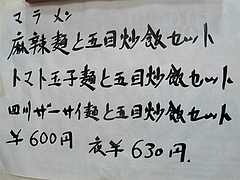 マラメン
麻辣麺と五目炒飯セット
トマト玉子麺と五目炒飯セット
四川ザーサイ麺と五目炒飯セット
¥600円 夜半630円.